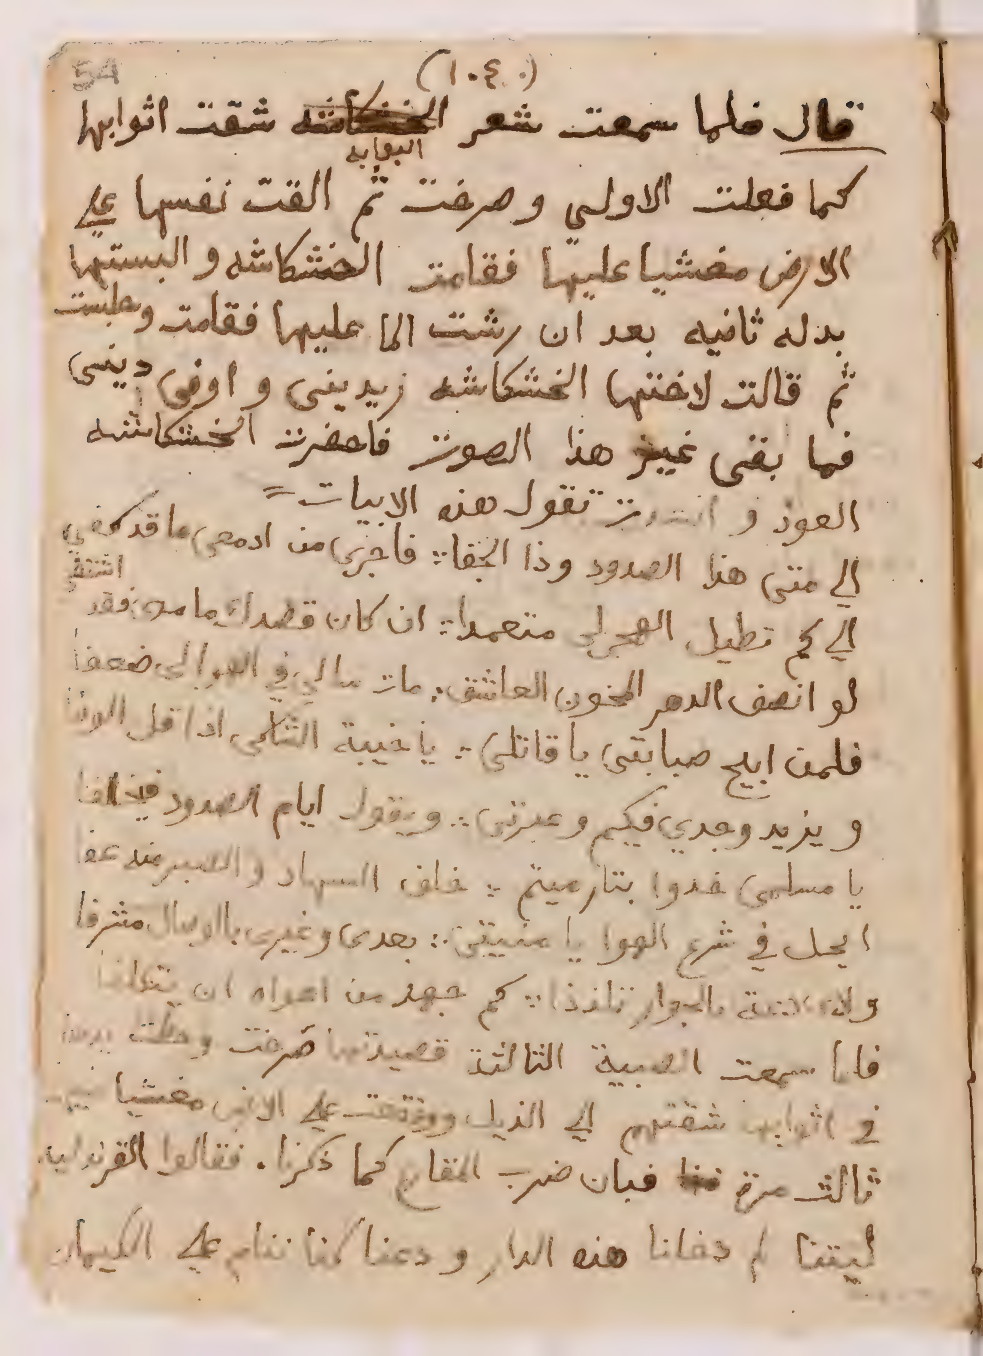 54
(١٠٤٠)
قال فلما سمعت شعر الخشكاشه شقت اثوابها
البوابه
كما فعلت الاولي وصرخت ثم القت نفسها علي
الارض مغشيا عليها فقامت الخشكاشه والبستها
بدله ثانيه بعد ان رشت الما عليها فقامت وجلست
ثم قالت لاختها الخشكاشه زيديني و اوفي ديني
فما بقى غير هذا الصوت فاحضرت الخشكاشه
العود و انشدت تقول هذه الابيات =
الي متى هذا الصدود وذا الجفا :: فاجرى من ادمعي ما قد كفي
الي كم تطيل الهجر لي متعمدا :: ان كان قصدك ما مدى فقد اشتفي
لو انصف الدهر الخون العاشق . مات مالي في الهوا لي ضعفا
فلمن ابيح صبابتي يا قاتلي :: يا خيبة الشاكي اذا قل الوفا
و يزيد وجدي فيكم وعبرتي :: ويقول ايام الصدود
يا مسلمي خدوا بتار ميتم :: خلف السهاد و الصبر منه عفا
ايحل في شرع الهوا يا منيتي :: بعدى وغيرى بالوصال مشرفا
بالجوار تلذذا :: كم جهد من اهواه ان يتكلفا
فلما سمعت الصبية الثالثة قصيدتها صرخت وحطت يدها
في اثوابها شقتهم الي الذيل ووقعت علي الارض مغشيا
ثالث مرة فبان ضرب المقارع كما ذكرنا . فقالوا القرندليه
ليتنا لم دخلنا هذه الدار و دعنا كنا ننام علي الكيمان